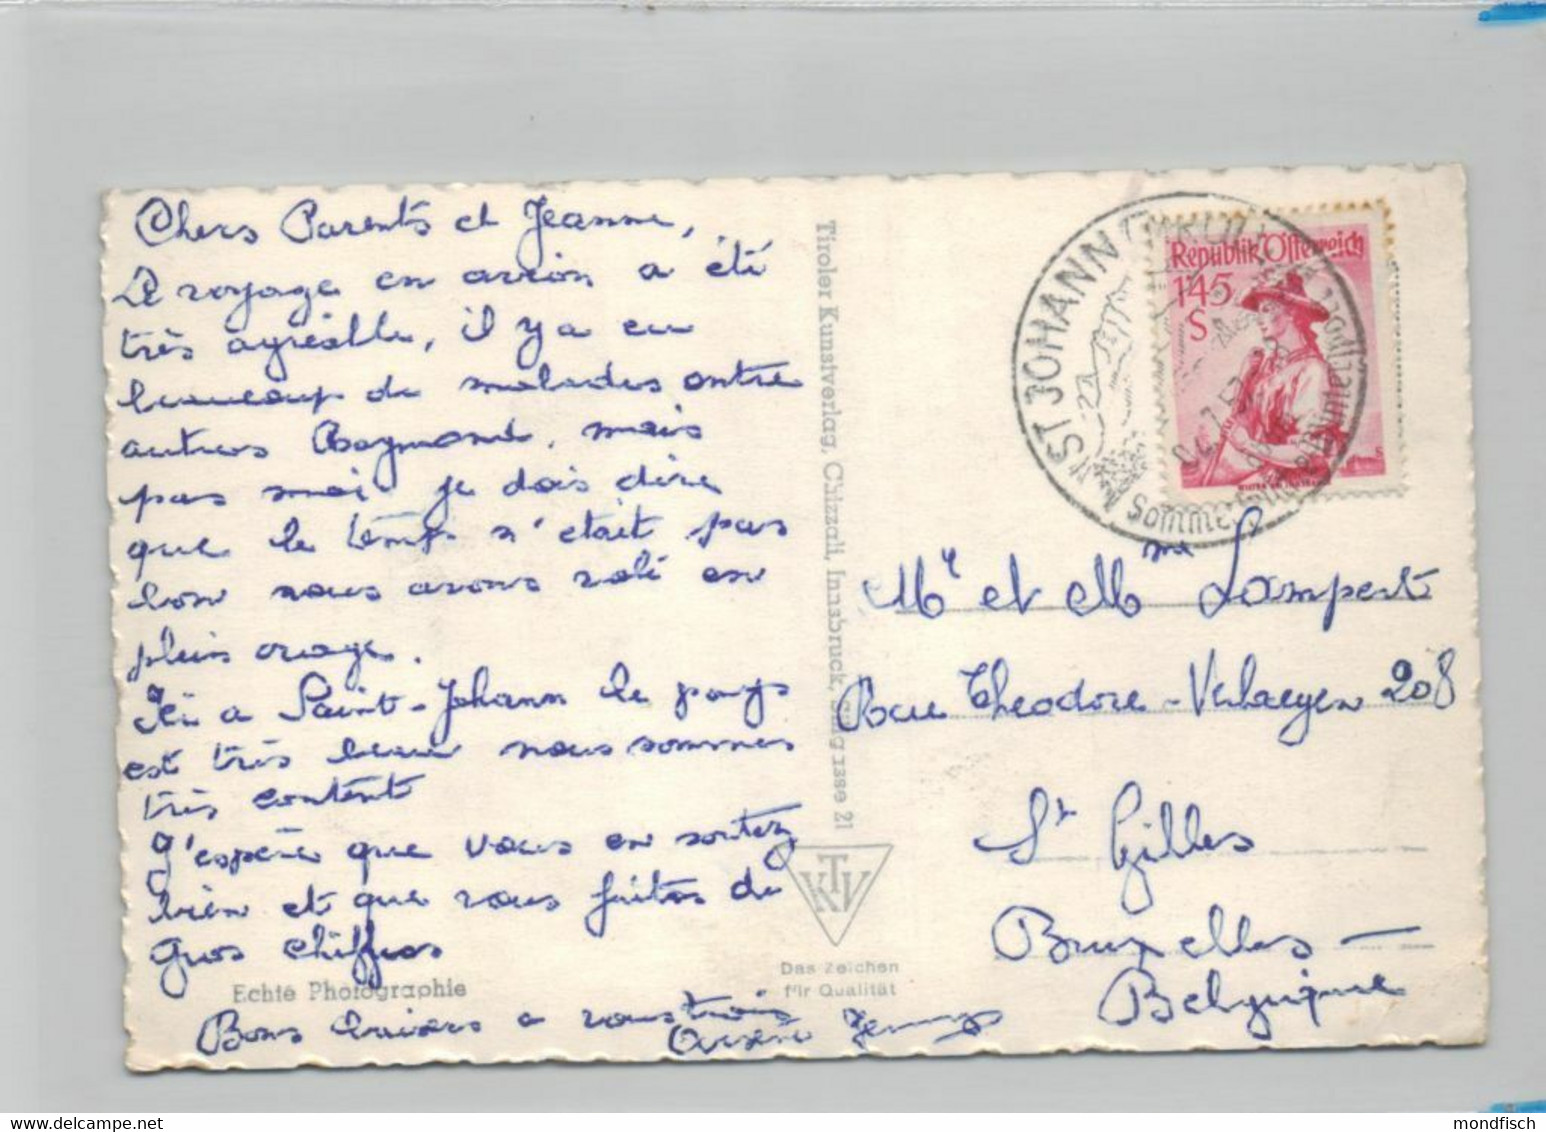 Chers Parents et Jeanne,
Le voyage en avion a été
très agréable, il y a eu
beaucoup de malades entre
autres Raymond, mais
pas moi je dois dire
que le temps n'était pas
bon nous avons volé en
plein orage.
Ici a Saint-Johann le pays
est très beau nous sommes
très content
J'espère que vous en sortez
bien et que vous faites de
gros chiffres
Echte Photographie
Bons baisers a vous trois
Jenny
Tiroler Kunstverlag, Chizzali, Innsbruck, Sillgasse 21
KTV
Das Zeichen
für Qualität
ST JOHANN (TIROL)
Republik Österreich
1'45
S
Mr et Mme Lampert
Rue Theodore-Verhaegen 208
St Gilles
Bruxelles —
Belgique
mondfisch